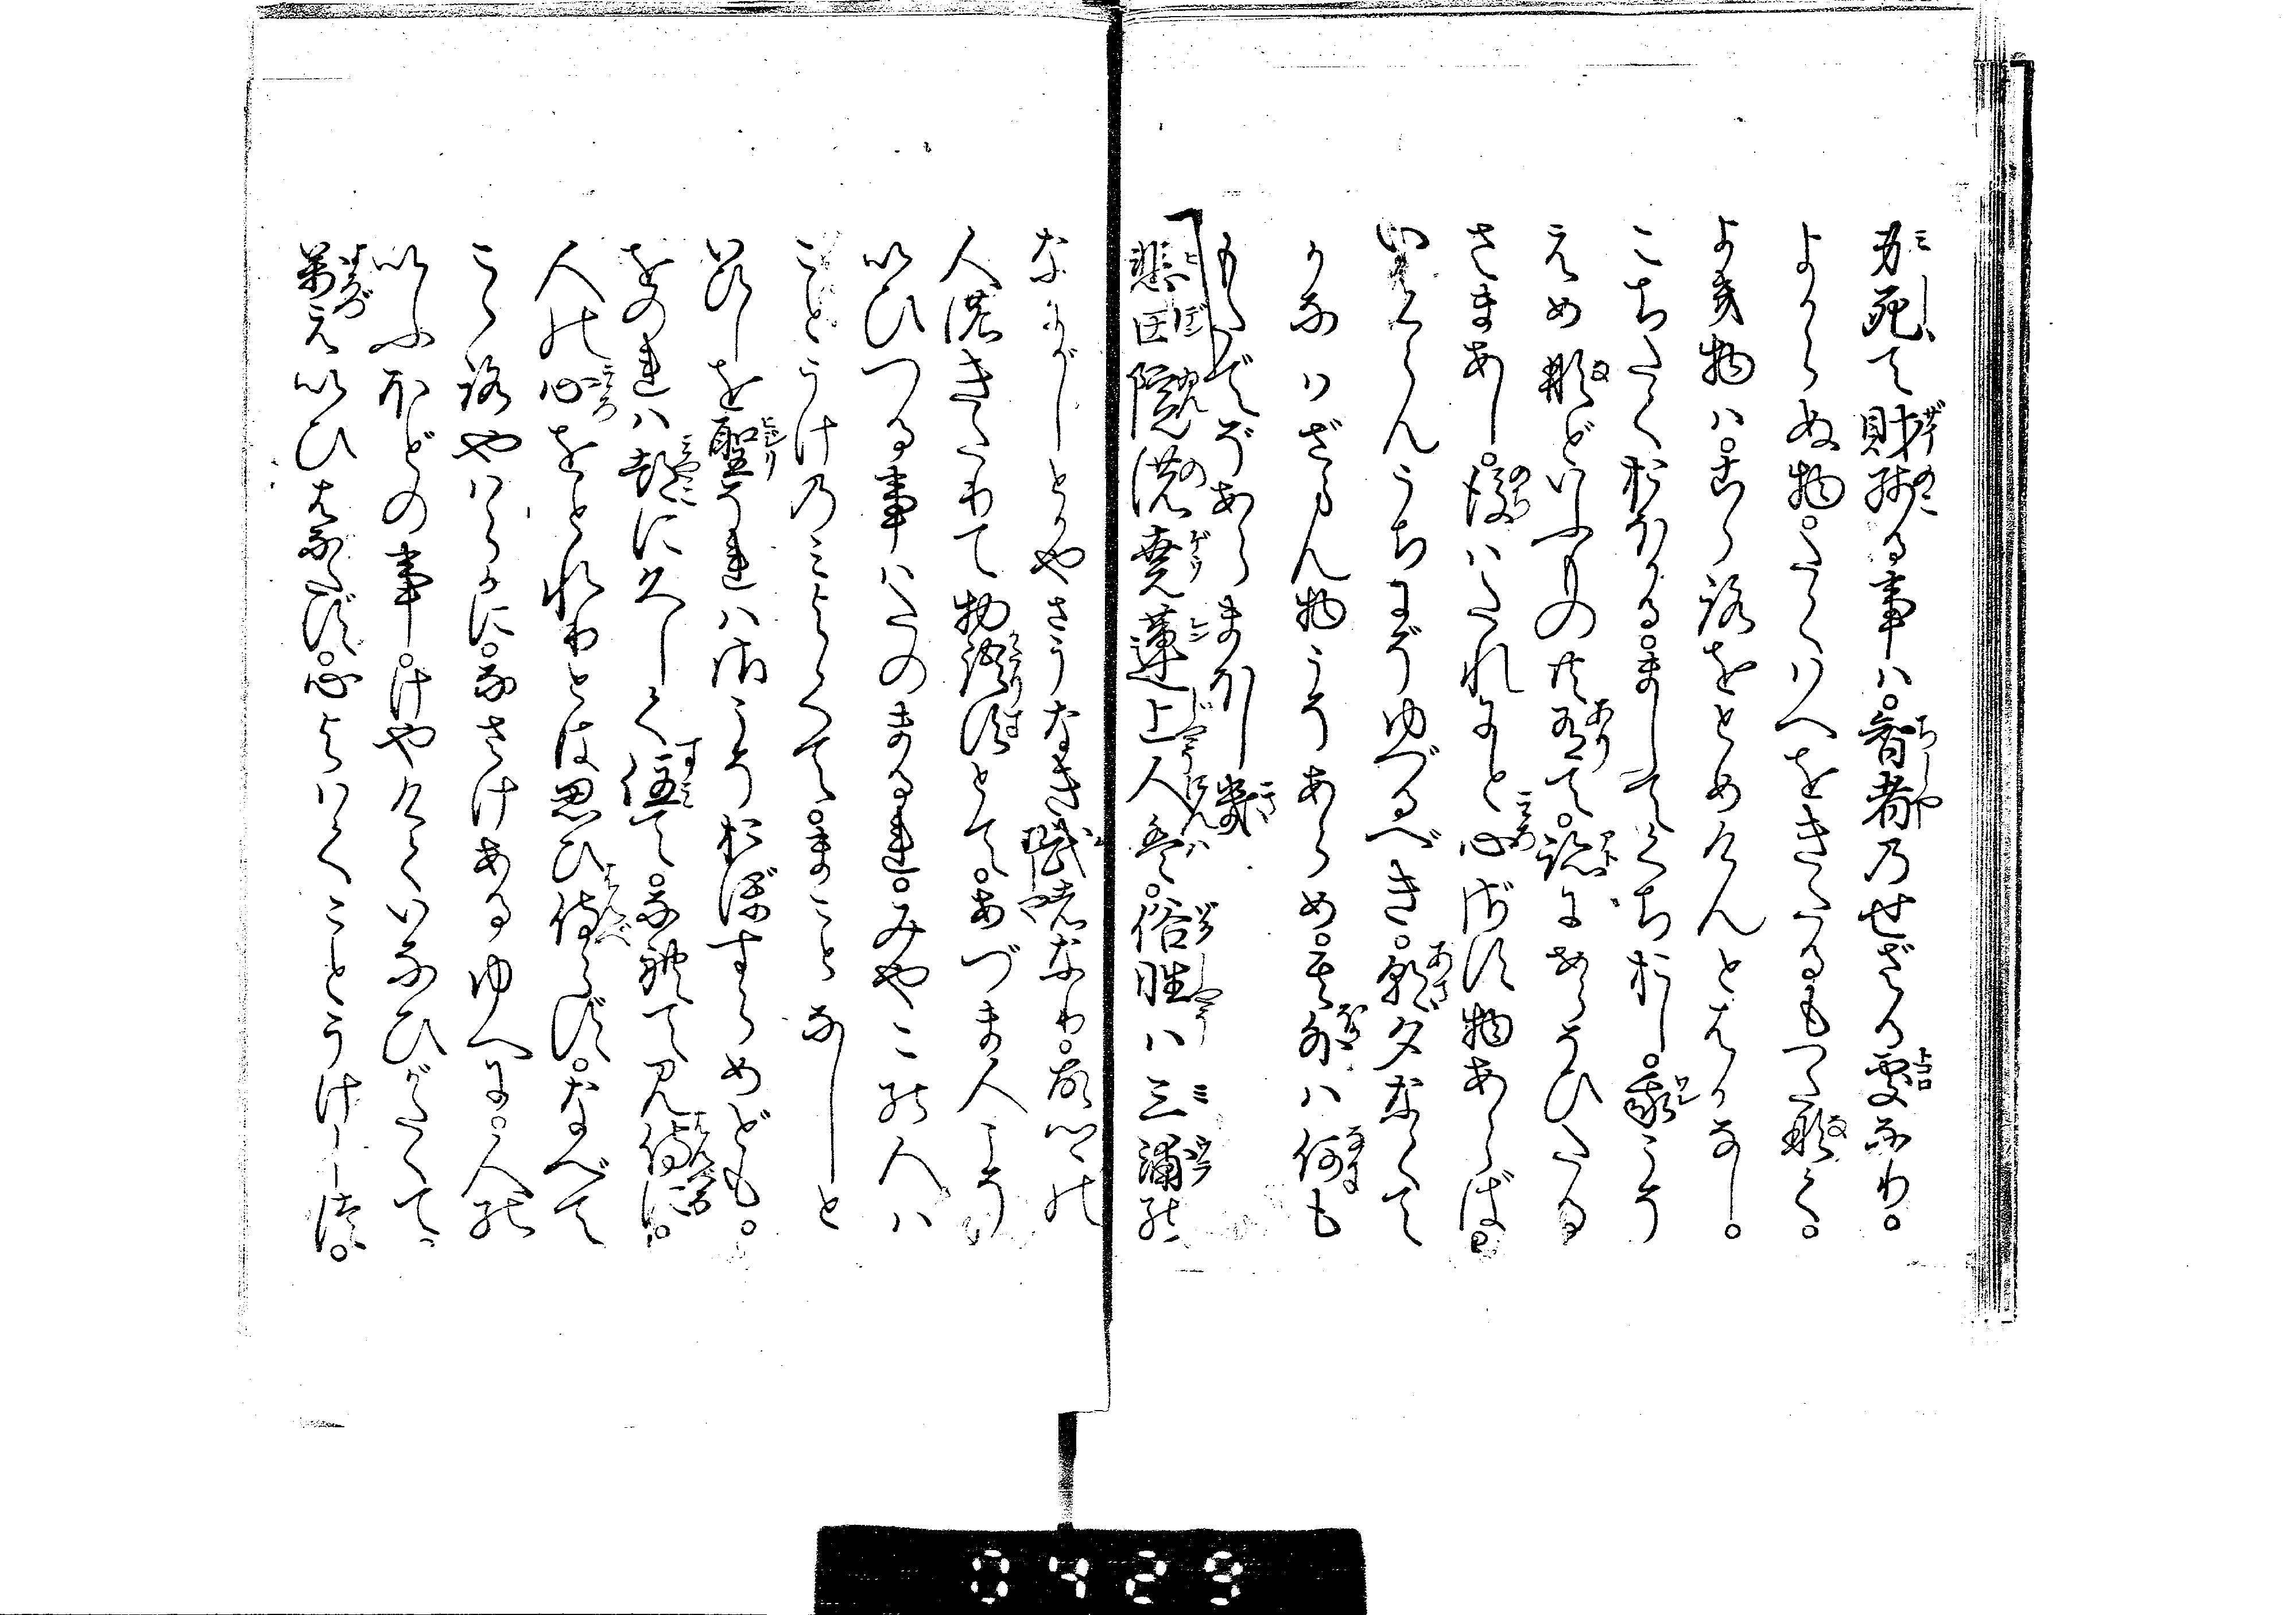 身死て財残る事ハ。智者のせざる処なり。
よからぬ物。たくハへをきたるもつた那く。
よき物ハ。こゝろをとめけんとはかなし。
こちたくおほかる。ましてくちおし。我こそ
えめ那どいふもの共有て。跡にあらそひたる
さまあし。後ハたれにと心ざす物あらば。
いけらんうちにぞゆづるべき。朝夕なくて
かなハざらん物こそあらめ。其外ハ何も
もたでぞあらまほしき
悲田院の尭蓮上人は。俗姓ハ三浦の
なにがしとかやさうなき武者なり。故郷の
人のきたりて物語すとて。あづま人こそ
いひつる事ハたのまるれ。みやこの人ハ
ことうけのみよくて。まことなしと
いひしを聖それハさこそおぼすらめども。
をのれハ都に久しく住て。なれて見侍に。
人の心をとれりとは思ひ侍らず。なべて
こゝろやハらかに。なさけあるゆへに。人の
いふほどの事。けやけくいなひがたくて
萬えいひはなたず。心よハくことうけしつ。
0423